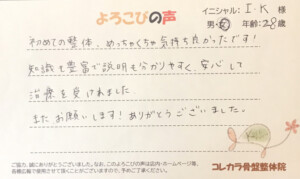 よろこびの声
イニシャル: I・K 様
男・女 年齢: 28歳
初めての整体、めっちゃくちゃ気持ち良かったです!
知識も豊富で説明も分かりやすく、安心して
治療を受けれました。
またお願いします!ありがとうございました。
ご協力、誠にありがとうございました。なお、このよろこびの声は店内・ホームページ等、
各種広報で使用させて頂くことがございますので、予めご了承ください。
コレカラ骨盤整体院